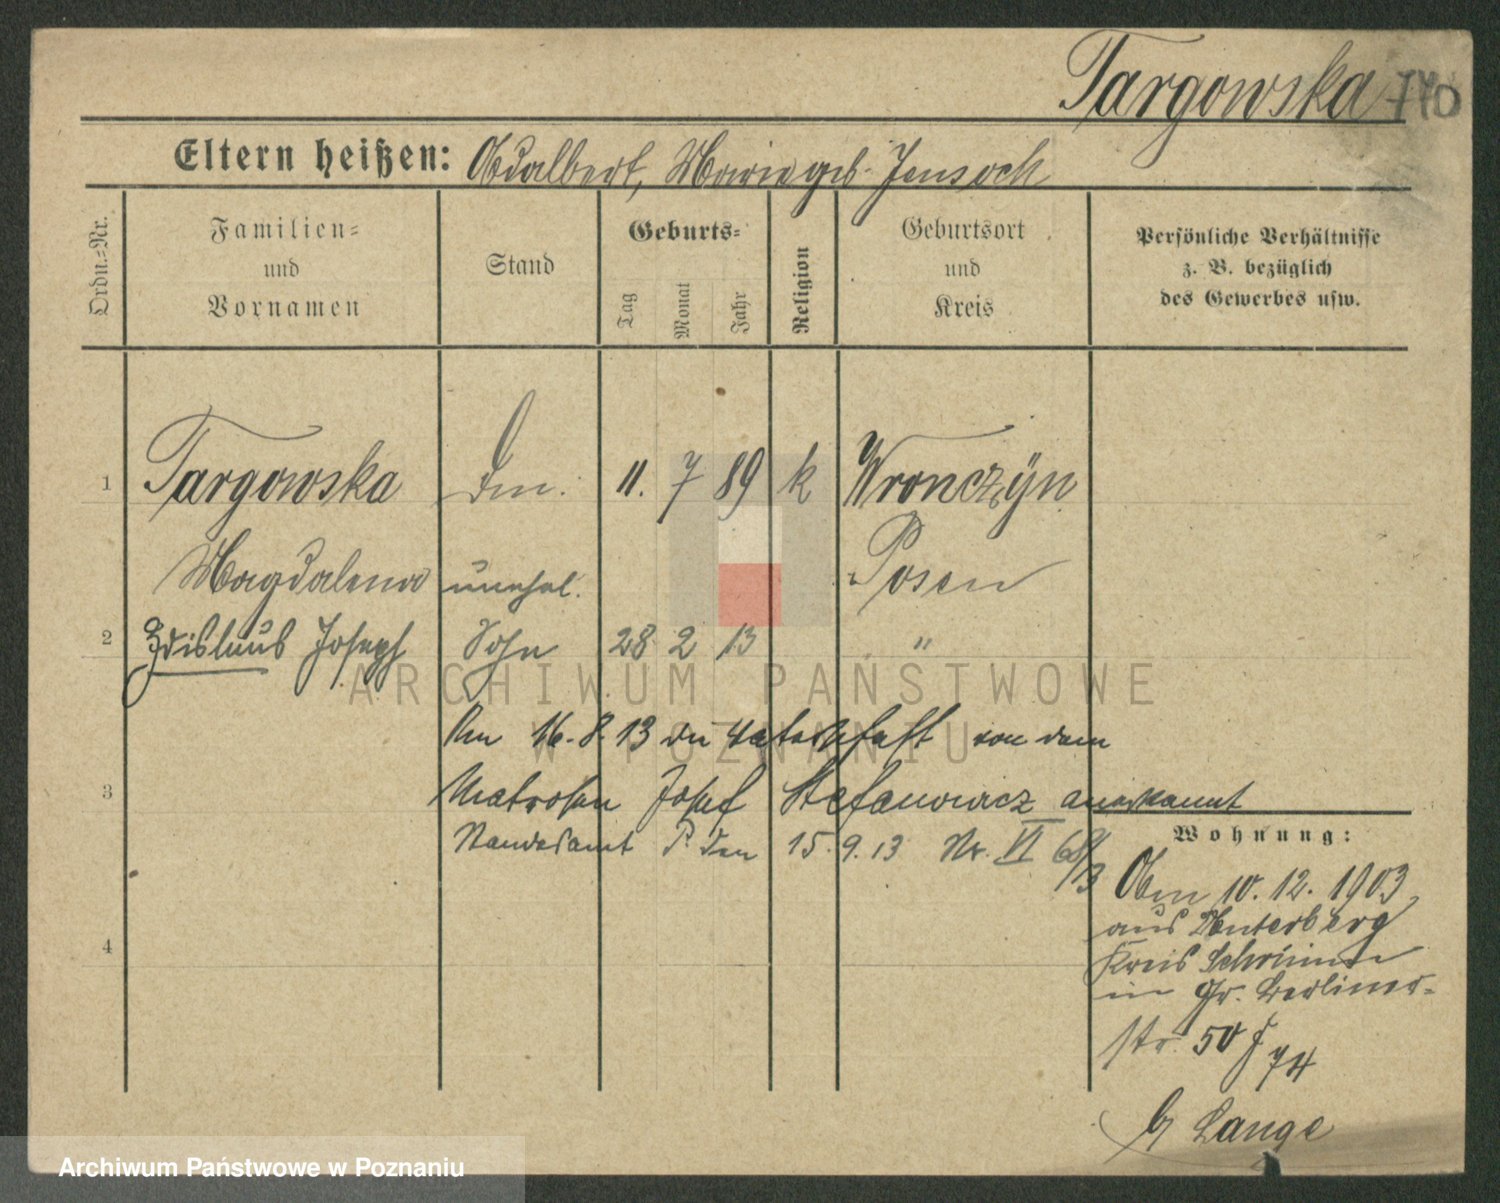 Targowska 770
Eltern heißen: Adalbert, Marie geb. Jensoch
Ordn.-Nr.
Familien-
und
Vornamen
Stand
Geburts-
Tag
Monat
Jahr
Religion
Geburtsort
und
Kreis
Persönliche Verhältnisse
z. B. bezüglich
des Gewerbes usw.
1 Targowska 11. 7 89 k Wronczÿn
Magdalena unehel. Posen
2 Zdislaus Joseph Sohn 28 2 13 "
ARCHIWUM PAŃSTWOWE
W POZNANIU
Am 16.8.13 die Vaterschaft von dem
3 Matrosen Josef Stefanowicz anerkannt
Standesamt P. den 15.9.13 Nr. VI 68/13
Wohnung:
Am 10.12.1903
aus Unterberg
Kreis Schrimm
in Gr. Berliner-
str. 50
74
4
b/ Lange
Archiwum Państwowe w Poznaniu